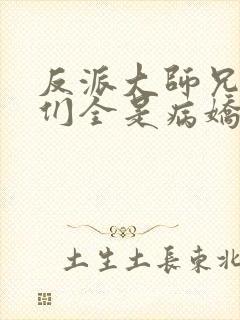 反派大師兄
们全是病嬌
土生土長東北